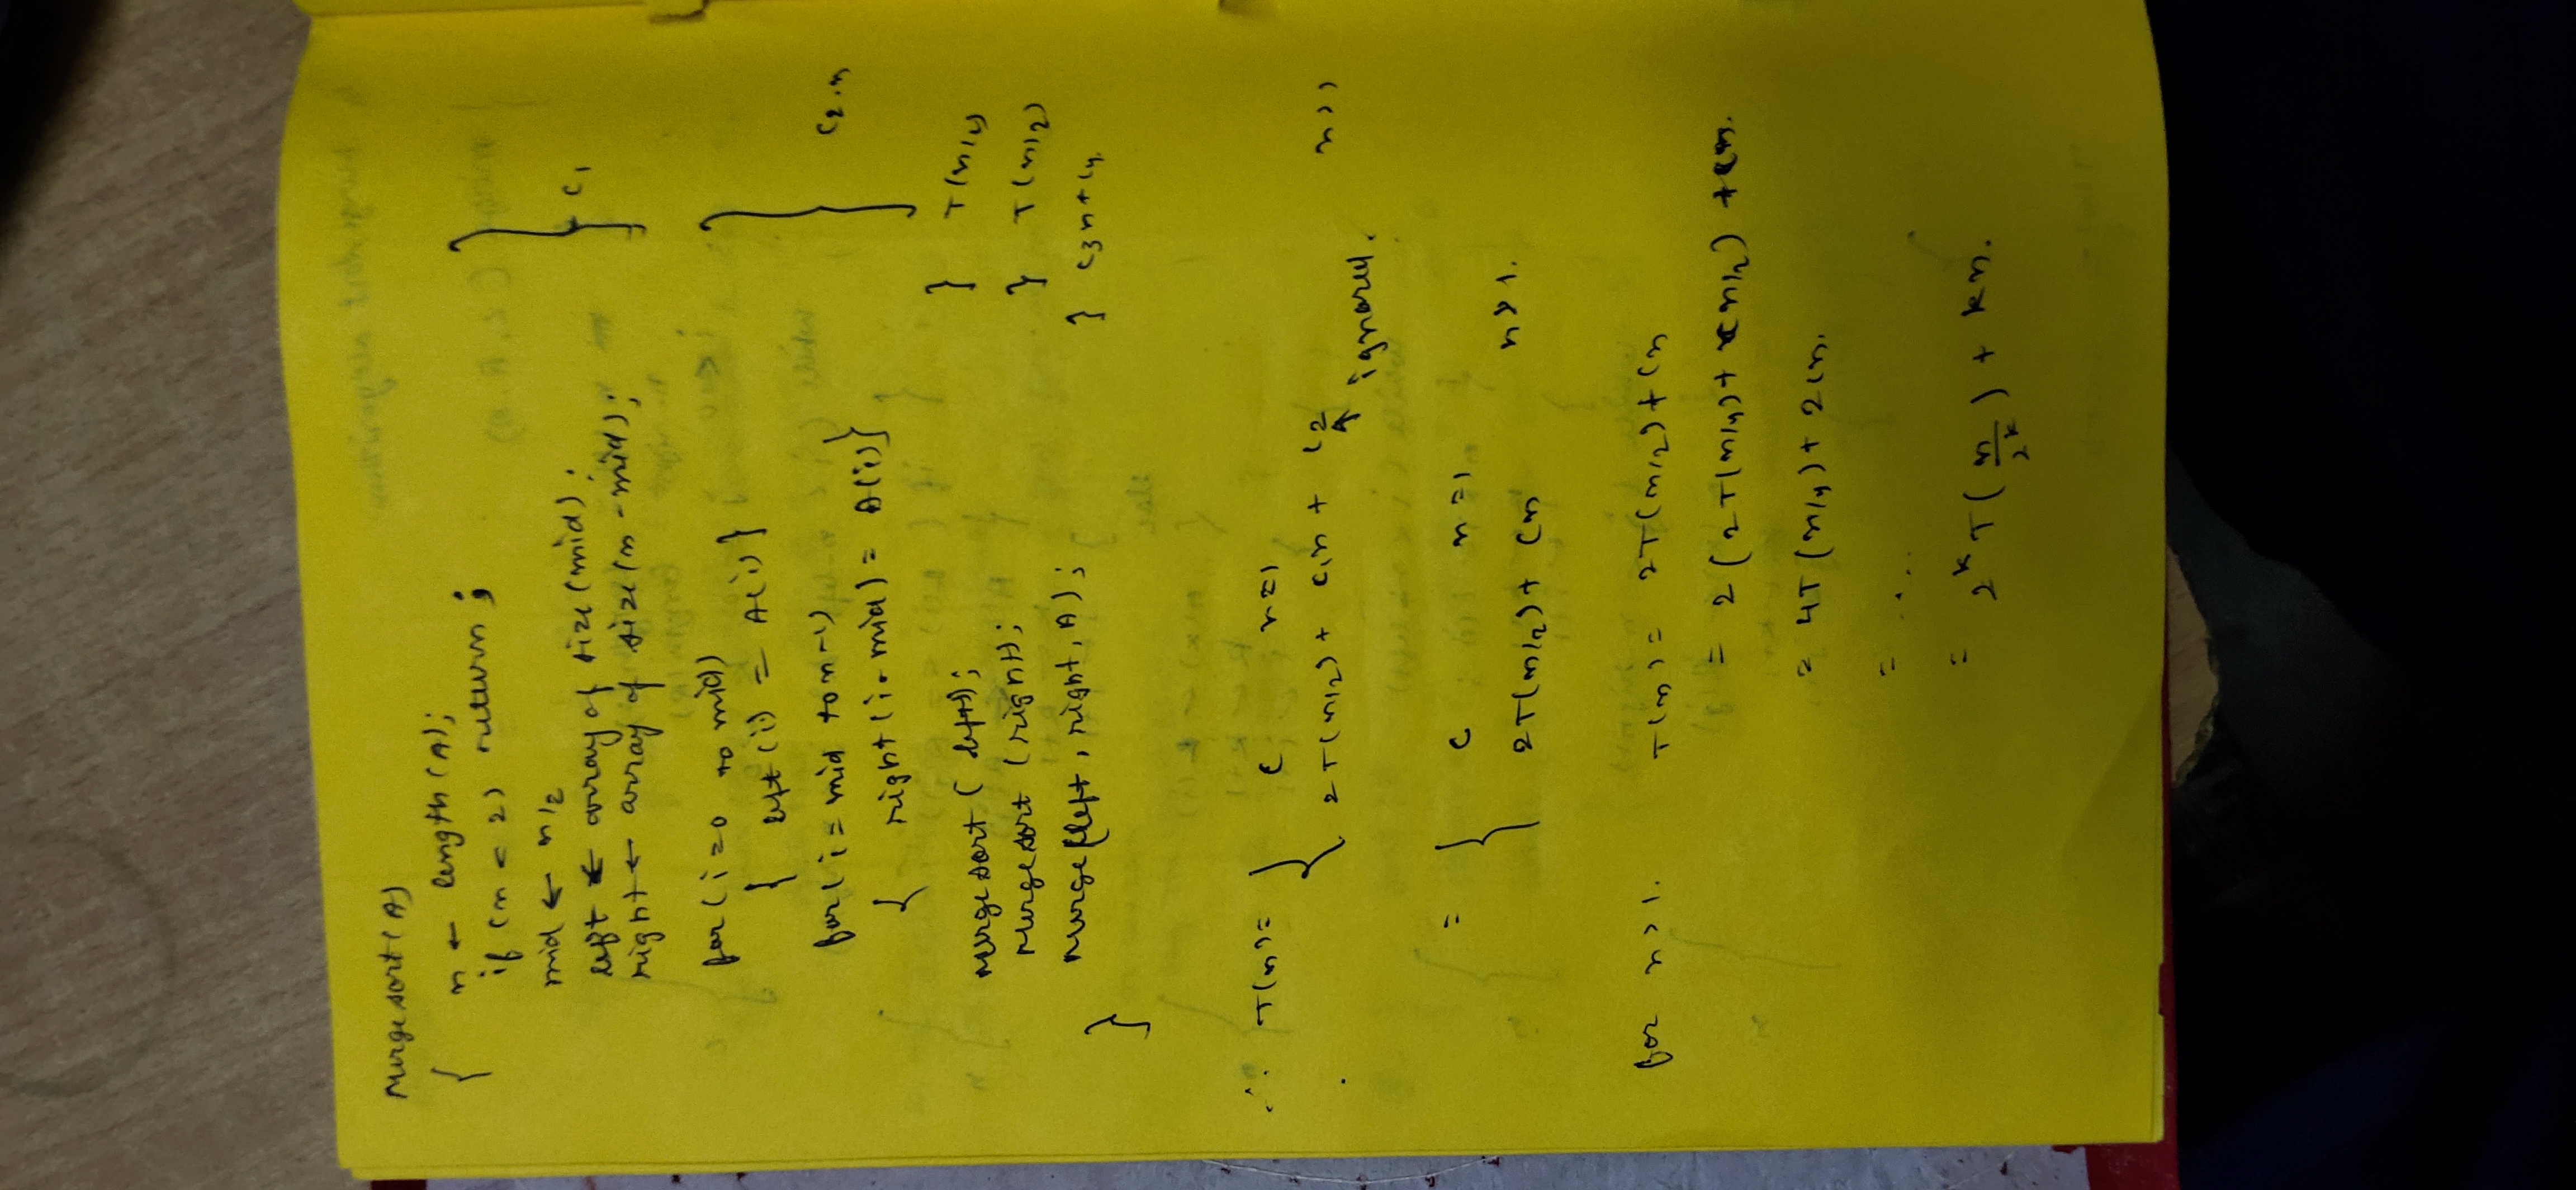 Mergesort(A)
{ n ← length(A);
if (n < 2) return;
mid ← n/2
left ← array of size(mid);
right ← array of size(n-mid); } c1
for(i=0 to mid)
{ left(i) = A(i)}
for(i=mid to n-1)
{ right(i-mid) = A(i)} } c2.n
Mergesort(left); } T(n/2)
Mergesort(right); } T(n/2)
Merge(left, right, A); } c3n+c4.
}
∴ T(n) = { c n=1
2T(n/2) + c1n + c2 n>1
↑ ignored.
= { c n=1
2T(n/2) + cn n>1.
for n>1. T(n) = 2T(n/2) + cn
= 2(2T(n/4) + cn/2) + cn.
= 4T(n/4) + 2cn.
= ....
= 2^k T(n/2^k) + kn.